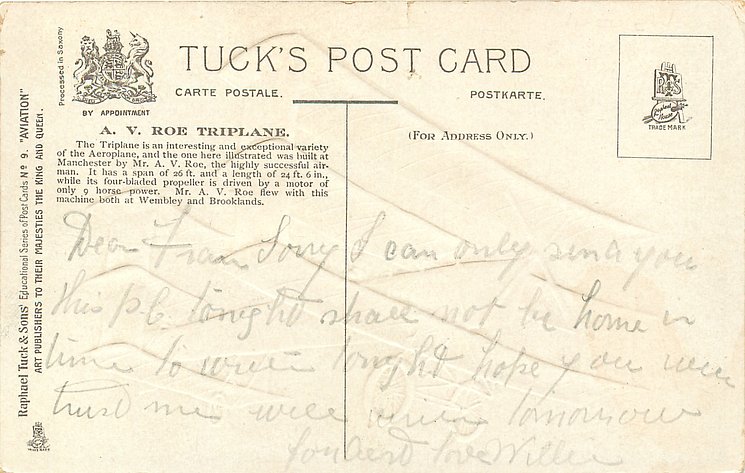 Processed in Saxony
BY APPOINTMENT
TUCK'S POST CARD
CARTE POSTALE.
POSTKARTE.
TRADE MARK
A. V. ROE TRIPLANE.
The Triplane is an interesting and exceptional variety
of the Aeroplane, and the one here illustrated was built at
Manchester by Mr. A. V. Roe, the highly successful air-
man. It has a span of 26 ft. and a length of 24 ft. 6 in.,
while its four-bladed propeller is driven by a motor of
only 9 horse power. Mr. A. V. Roe flew with this
machine both at Wembley and Brooklands.
(FOR ADDRESS ONLY.)
Raphael Tuck & Sons' Educational Series of Post Cards No 9. "AVIATION"
ART PUBLISHERS TO THEIR MAJESTIES THE KING AND QUEEN.
Dear Fran Sorry I can only send you
this P.C. tonight shall not be home in
time to write tonight hope you will
trust me will write tomorrow
fondest love Willie